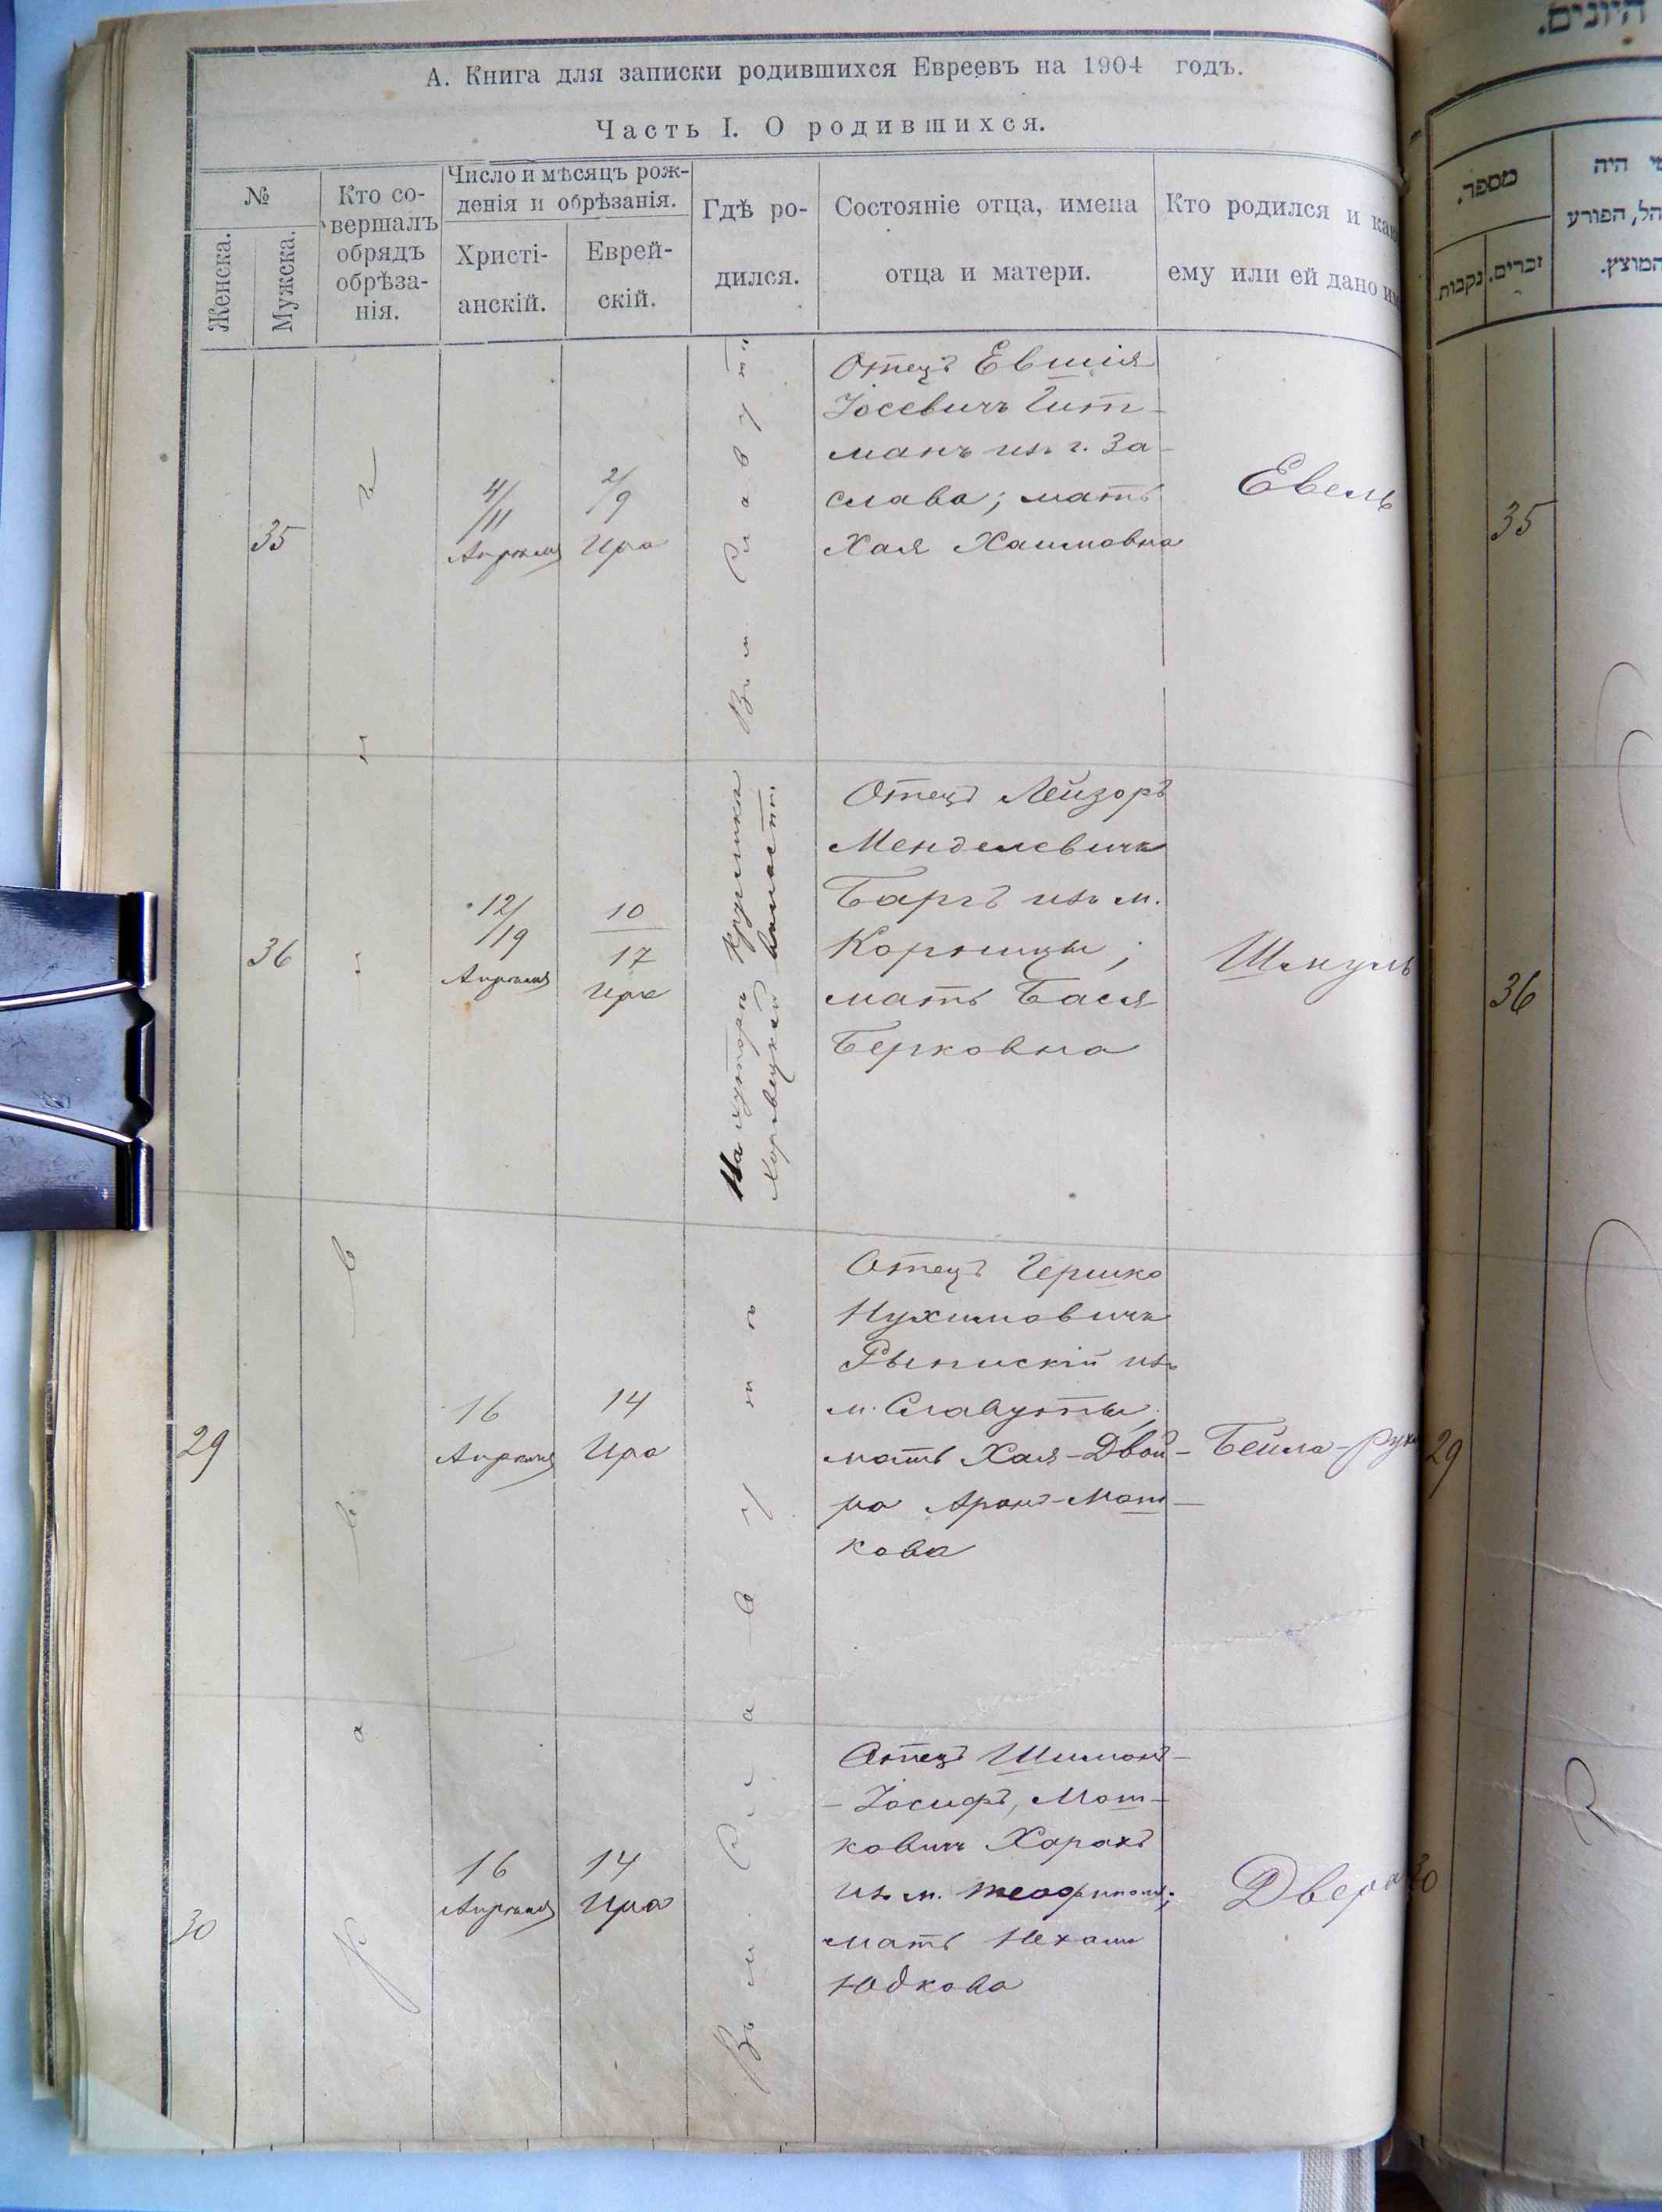 А. Книга для записки родившихся Евреевъ на 1904 годъ.
Часть I. О родившихся.
№
Женска.
Мужеска.
Кто со-
вершалъ
обрядъ
обрѣза-
нія.
Число и мѣсяцъ рож-
денія и обрѣзанія.
Христі-
анскій.
Еврей-
скій.
Гдѣ ро-
дился.
Состояніе отца, имена
отца и матери.
Кто родился и как
ему или ей дано им
35
4/11
Апрѣля
2/9
Ира
Въ м. Славутѣ
Отецъ Евшія
Іосевичъ Гит-
манъ изъ г. За-
слава; мать
Хая Хаимовна
Евель
36
12/19
Апрѣля
10
17
Ира
На хуторѣ
волости.
Отецъ Лейзоръ
Менделевичъ
Баргъ изъ м.
Корницы;
мать Бася
Берковна
Шмуль
29
16
Апрѣля
14
Ира
Отецъ Гершко
Нухимовичъ
изъ
м. Славуты;
мать Хая-Двой-
ра Аронъ-Мош-
кова
Бейла-Рух
30
16
Апрѣля
14
Ира
Въ м. Славутѣ
Отецъ Шимонъ-
-Іосифъ, Мош-
ковичъ Хорохъ
изъ м. Теофиполя;
мать Нехама
Юдкова
Двера
Раввинъ
היונים.
מספר.
זכרים.
נקבות
מי היה
הל, הפורע
המוצץ.
35
36
29
30